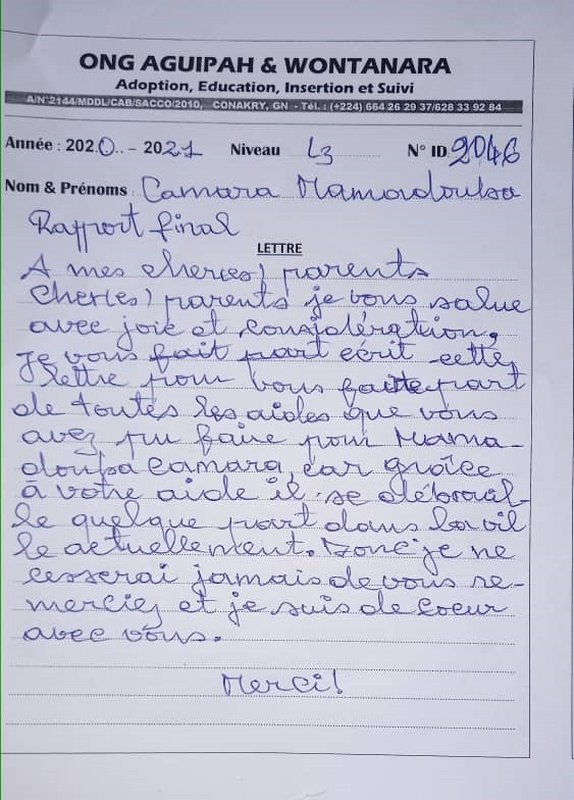 ONG AGUIPAH & WONTANARA
Adoption, Education, Insertion et Suivi
A/N°2144/MDDL/CAB/SACCO/2010, CONAKRY, GN - Tél. : (+224) 664 26 29 37/628 33 92 84
Année : 2020.. - 2021 Niveau L3 N° ID 2046
Nom & Prénoms : Camara Mamadouba
Rapport final
LETTRE
A mes cher(es) parents
Cher(es) parents je vous salue
avec joie et considération,
Je vous fait part écrit cette
lettre pour vous faite part
de toutes les aides que vous
avez pu faire pour Mama-
douba Camara, car grâce
à votre aide il se débrouil-
le quelque part dans la vil
le actuellement. Donc je ne
cesserai jamais de vous re-
merciez et je suis de coeur
avec vous.
Merci!